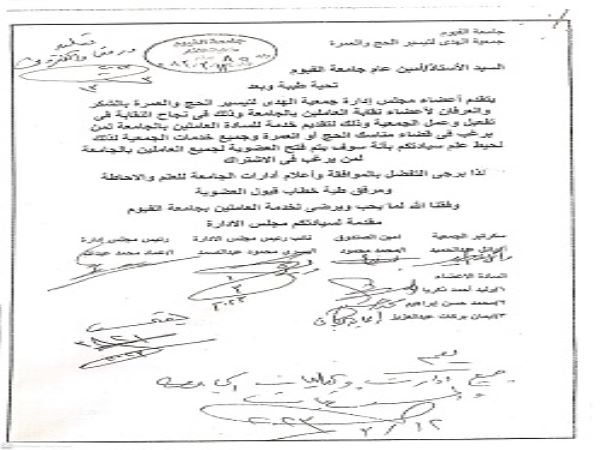 جامعة الفيوم
جمعية الهدى لتيسير الحج والعمرة
جامعة الفيوم
السيد الأستاذ/أمين عام جامعة الفيوم
تحية طيبة وبعد
يتقدم أعضاء مجلس إدارة جمعية الهدى لتيسير الحج والعمرة بالشكر
والعرفان لأعضاء نقابة العاملين بالجامعة وذلك فى نجاح النقابة فى
تفعيل وعمل الجمعية وذلك لتقديم خدمة للسادة العاملين بالجامعة لمن
يرغب فى قضاء مناسك الحج أو العمرة وجميع خدمات الجمعية لذلك
نحيط علم سيادتكم بأنة سوف يتم فتح العضوية لجميع العاملين بالجامعة
لمن يرغب فى الاشتراك
لذا يرجى التفضل بالموافقة وأعلام أدارات الجامعة للعلم والاحاطة
ومرفق طية خطاب قبول العضوية
وفقنا الله لما يحب ويرضى لخدمة العاملين بجامعة الفيوم
مقدمة لسيادتكم مجلس الادارة
سكرتير الجمعية أمين الصندوق نائب رئيس مجلس الادارة رئيس مجلس إدارة
أ/محمد محمود أ/يسرى محمود عبدالصمد أ/عماد محمد
السادة الاعضاء
١/وليد أحمد زكريا
٢/محمد حسن إبراهيم
٣/إيمان بركات عبدالعزيز
يعمم
جميع إدارات وكليات الجامعة